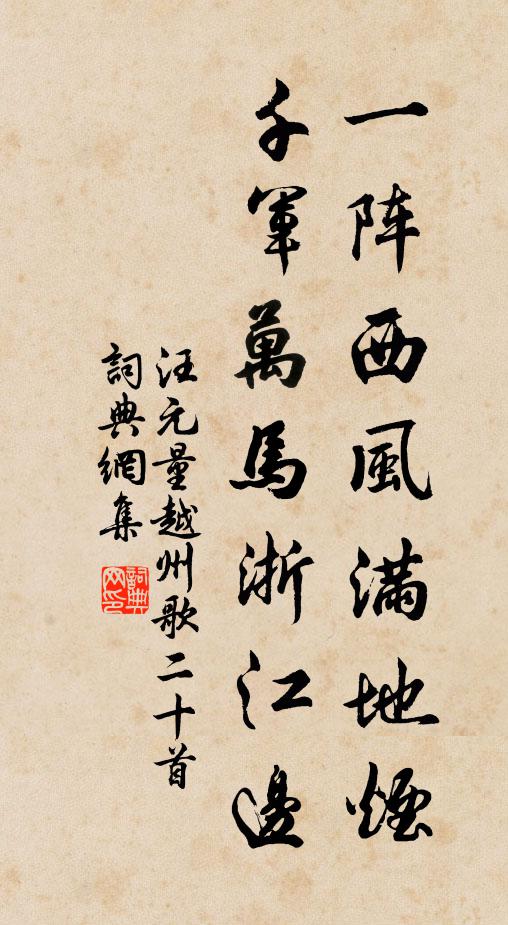 一阵西風滿地煙
千軍萬馬浙江邊
汪元量越州歌二十首
詞典網集
詞典网印